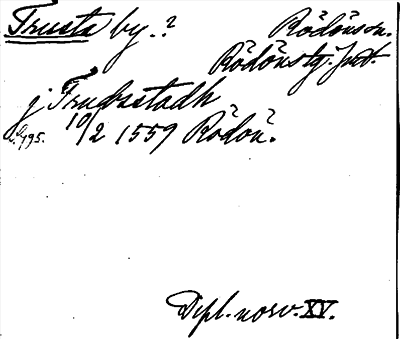 Trusta by.? Rödönssn.
Rödöns tg. Jmt.
j Frubsstadh
s. 195. 10/2 1559 Rödön.
Dipl. norv. XV.